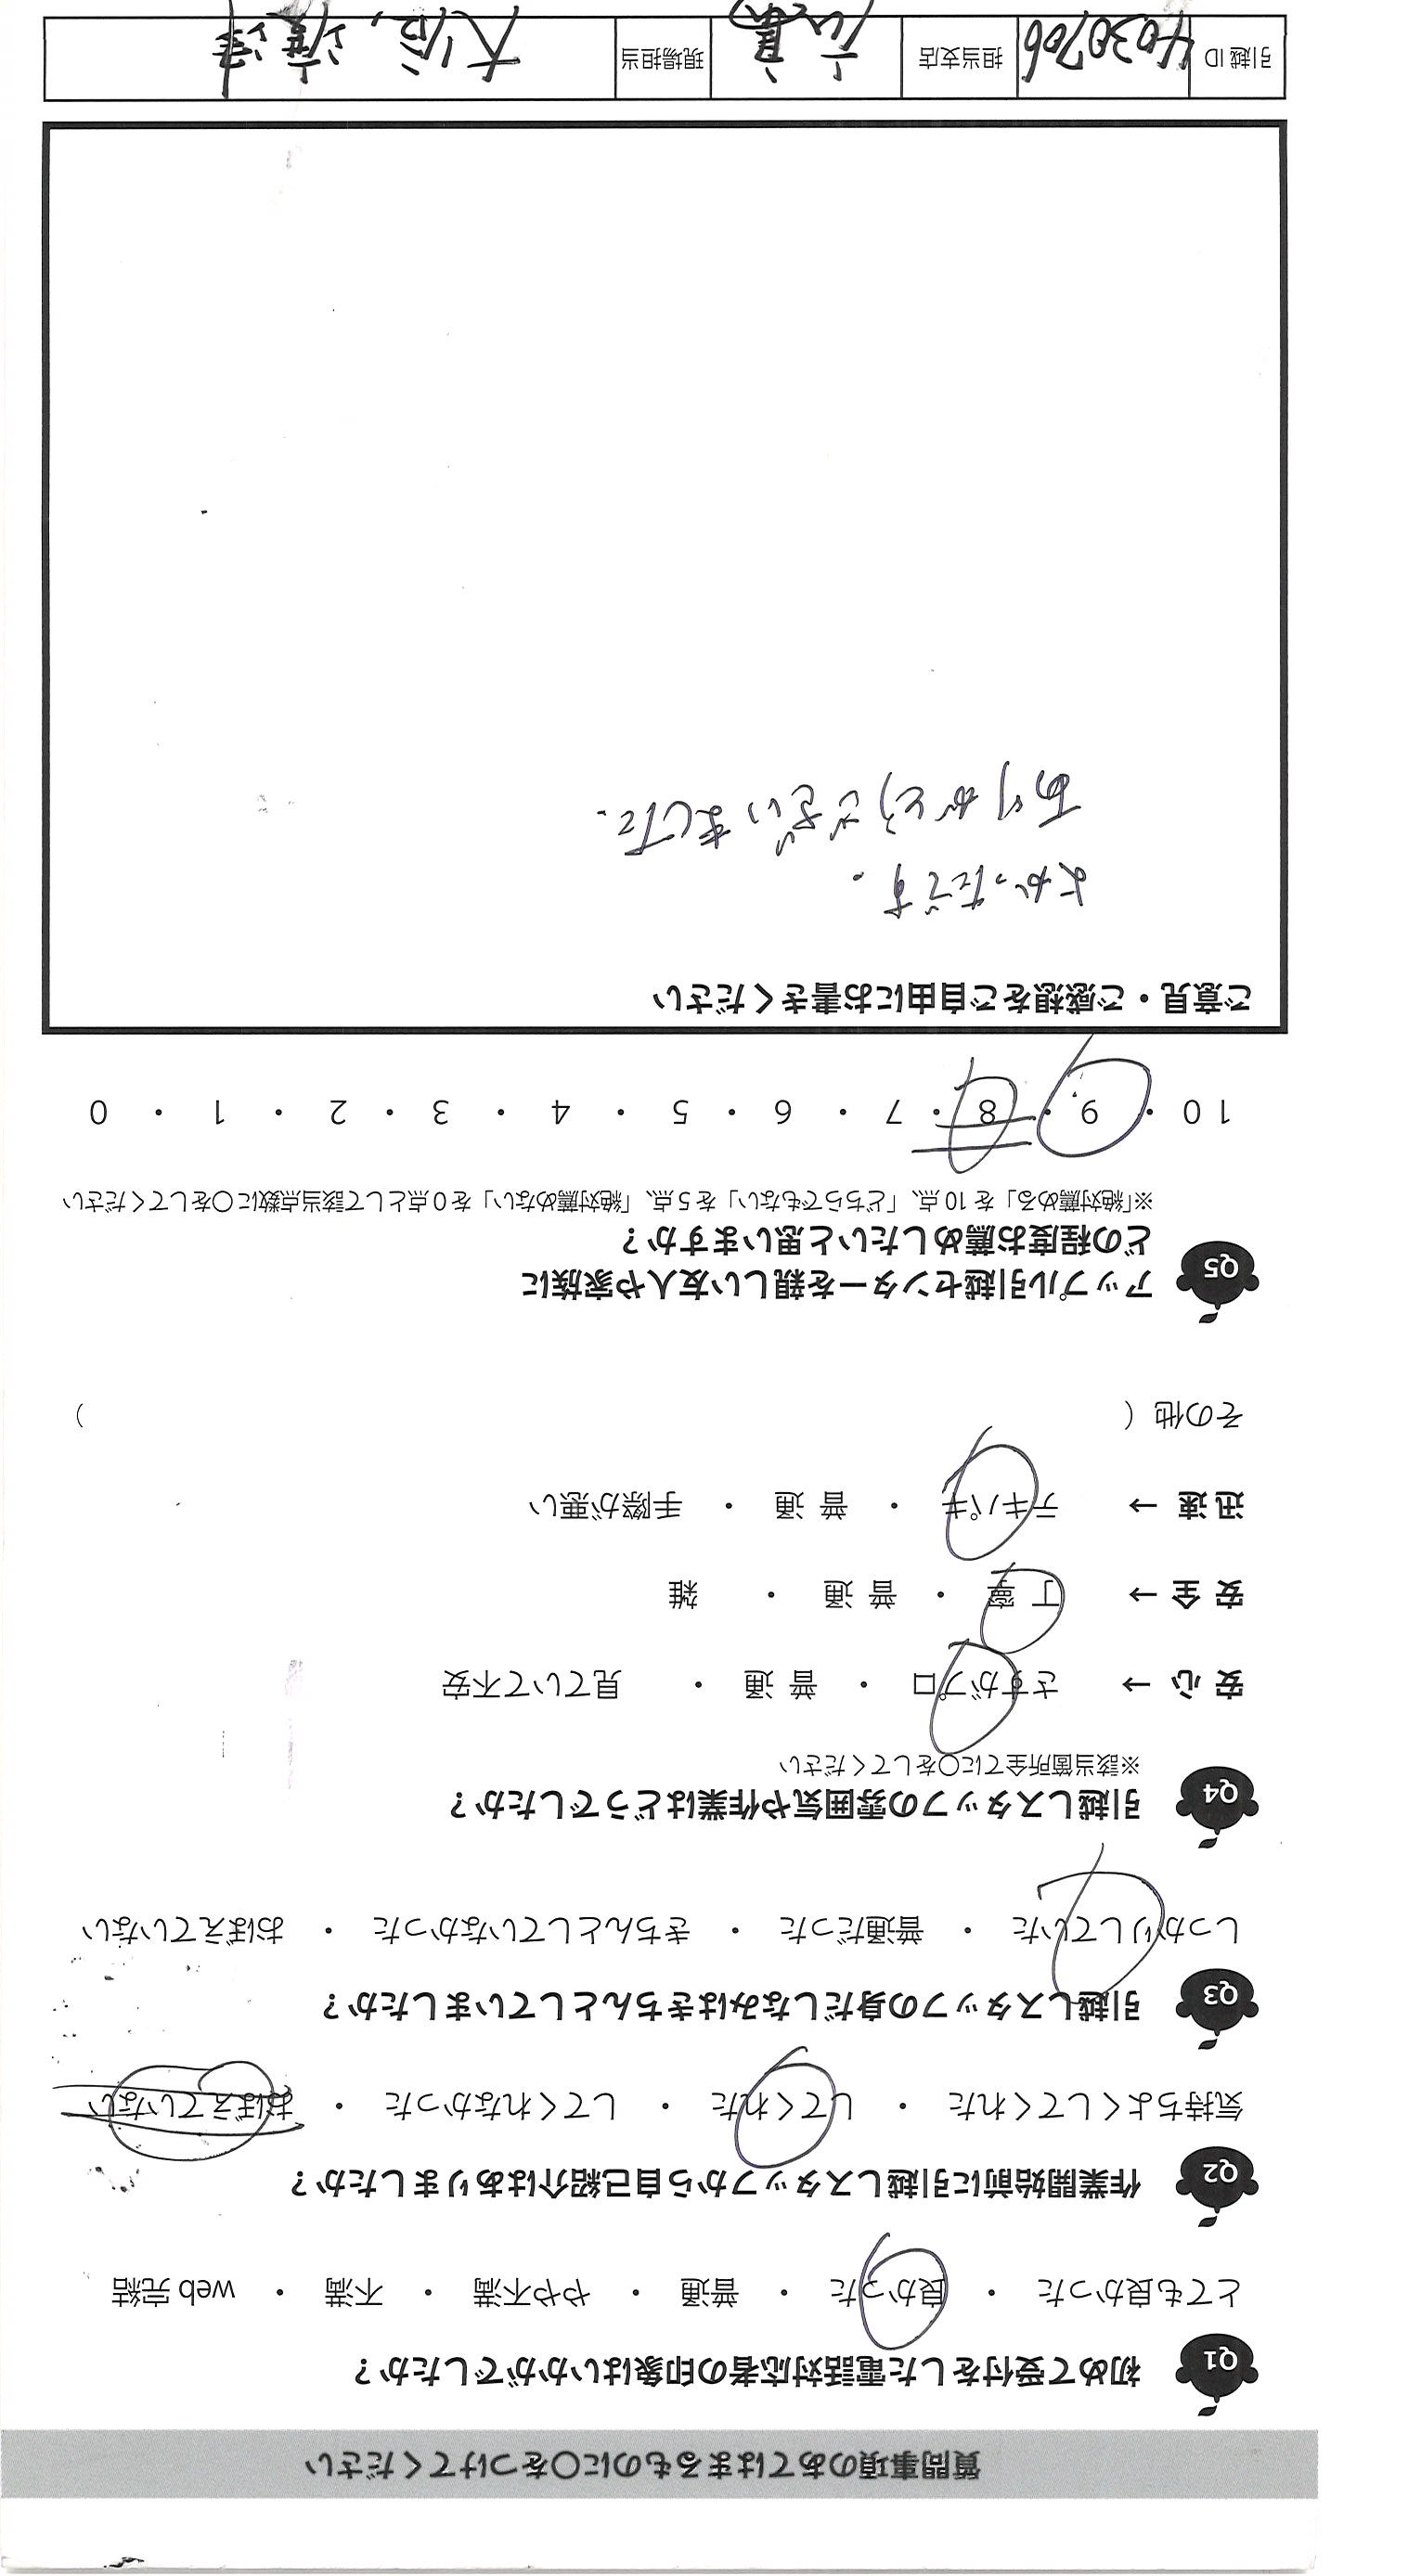 質問事項のあてはまるものに○をつけてください
Q1 初めて受付をした電話対応者の印象はいかがでしたか？
とても良かった ・ 良かった ・ 普通 ・ やや不満 ・ 不満 ・ web 完結
Q2 作業開始前に引越しスタッフから自己紹介はありましたか？
気持ちよくしてくれた ・ してくれた ・ してくれなかった ・ おぼえていない
Q3 引越しスタッフの身だしなみはきちんとしていましたか？
しっかりしていた ・ 普通だった ・ きちんとしていなかった ・ おぼえていない
Q4 引越しスタッフの雰囲気や作業はどうでしたか？
※該当箇所全てに○をしてください
安心 → さすがプロ ・ 普通 ・ 見ていて不安
安全 → 丁寧 ・ 普通 ・ 雑
迅速 → テキパキ ・ 普通 ・ 手際が悪い
その他（ ）
Q5 アップル引越センターを親しい友人や家族に
どの程度お薦めしたいと思いますか？
※「絶対薦める」を 10 点、「どちらでもない」を 5 点、「絶対薦めない」を 0 点として該当点数に○をしてください
10 ・ 9 ・ 8 ・ 7 ・ 6 ・ 5 ・ 4 ・ 3 ・ 2 ・ 1 ・ 0
ご意見・ご感想をご自由にお書きください
よかったです。
ありがとうございました。
引越 ID 4030706 担当支店 現場担当